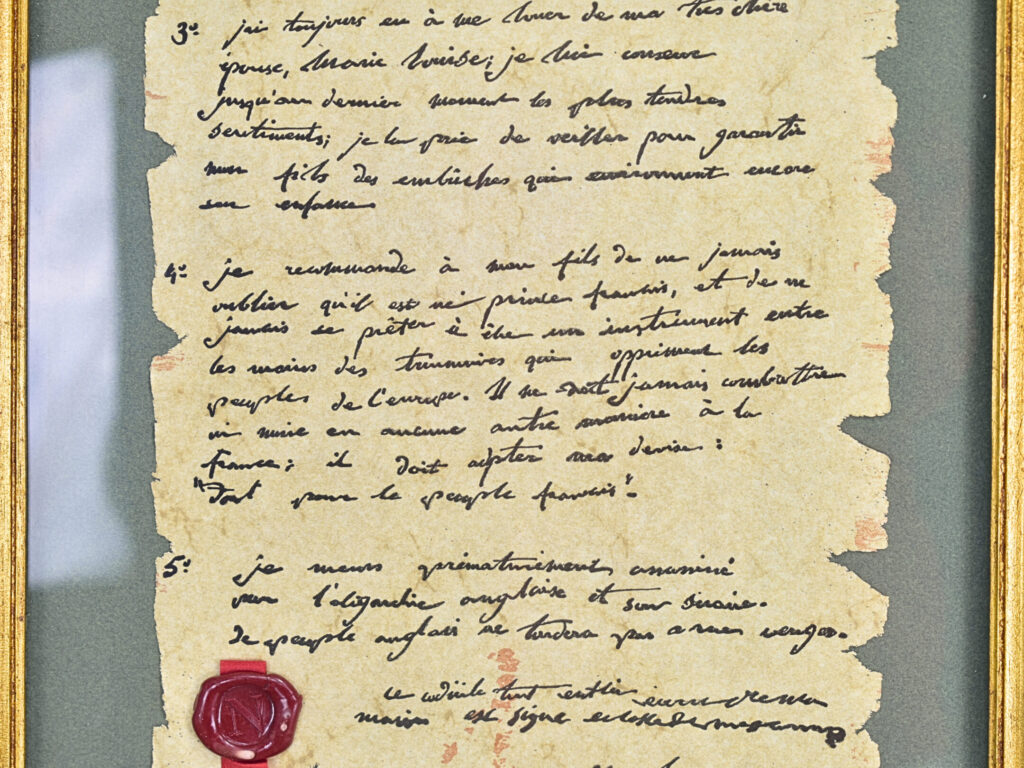 3º. j'ai toujours eu à me louer de ma très chère
épouse, Marie Louise; je lui conserve
jusqu'au dernier moment les plus tendres
sentiments; je la prie de veiller pour garantir
mon fils des embûches qui environnent encore
son enfance
4º. je recommande à mon fils de ne jamais
oublier qu'il est né prince français, et de ne
jamais se prêter à être un instrument entre
les mains des triumvirs qui oppriment les
peuples de l'europe. Il ne doit jamais combattre
ni nuire en aucune autre manière à la
france; il doit adopter ma devise :
"Tout pour le peuple français".
5º. je meurs prématurément assassiné
par l'oligarchie anglaise et son sicaire.
le peuple anglais ne tardera pas a me venger.
ce codicile tout entier écrit de ma
main est signé et de mes armes
N